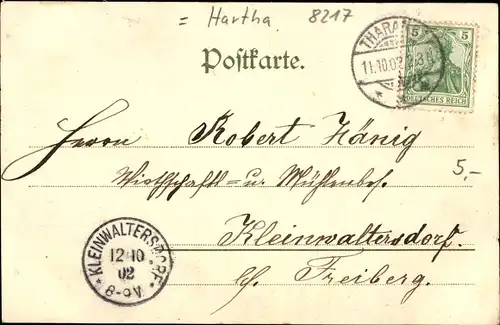 = Hartha. 8217
Postkarte.
THARA
11.10.02
5 5
DEUTSCHES REICH
Herrn Robert Hänig
Wirthschafts= u. Mühlenbes.
5.-
Kleinwaltersdorf.
b/ Freiberg.
* KLEINWALTERSDORF *
12 10
02
8-9V.